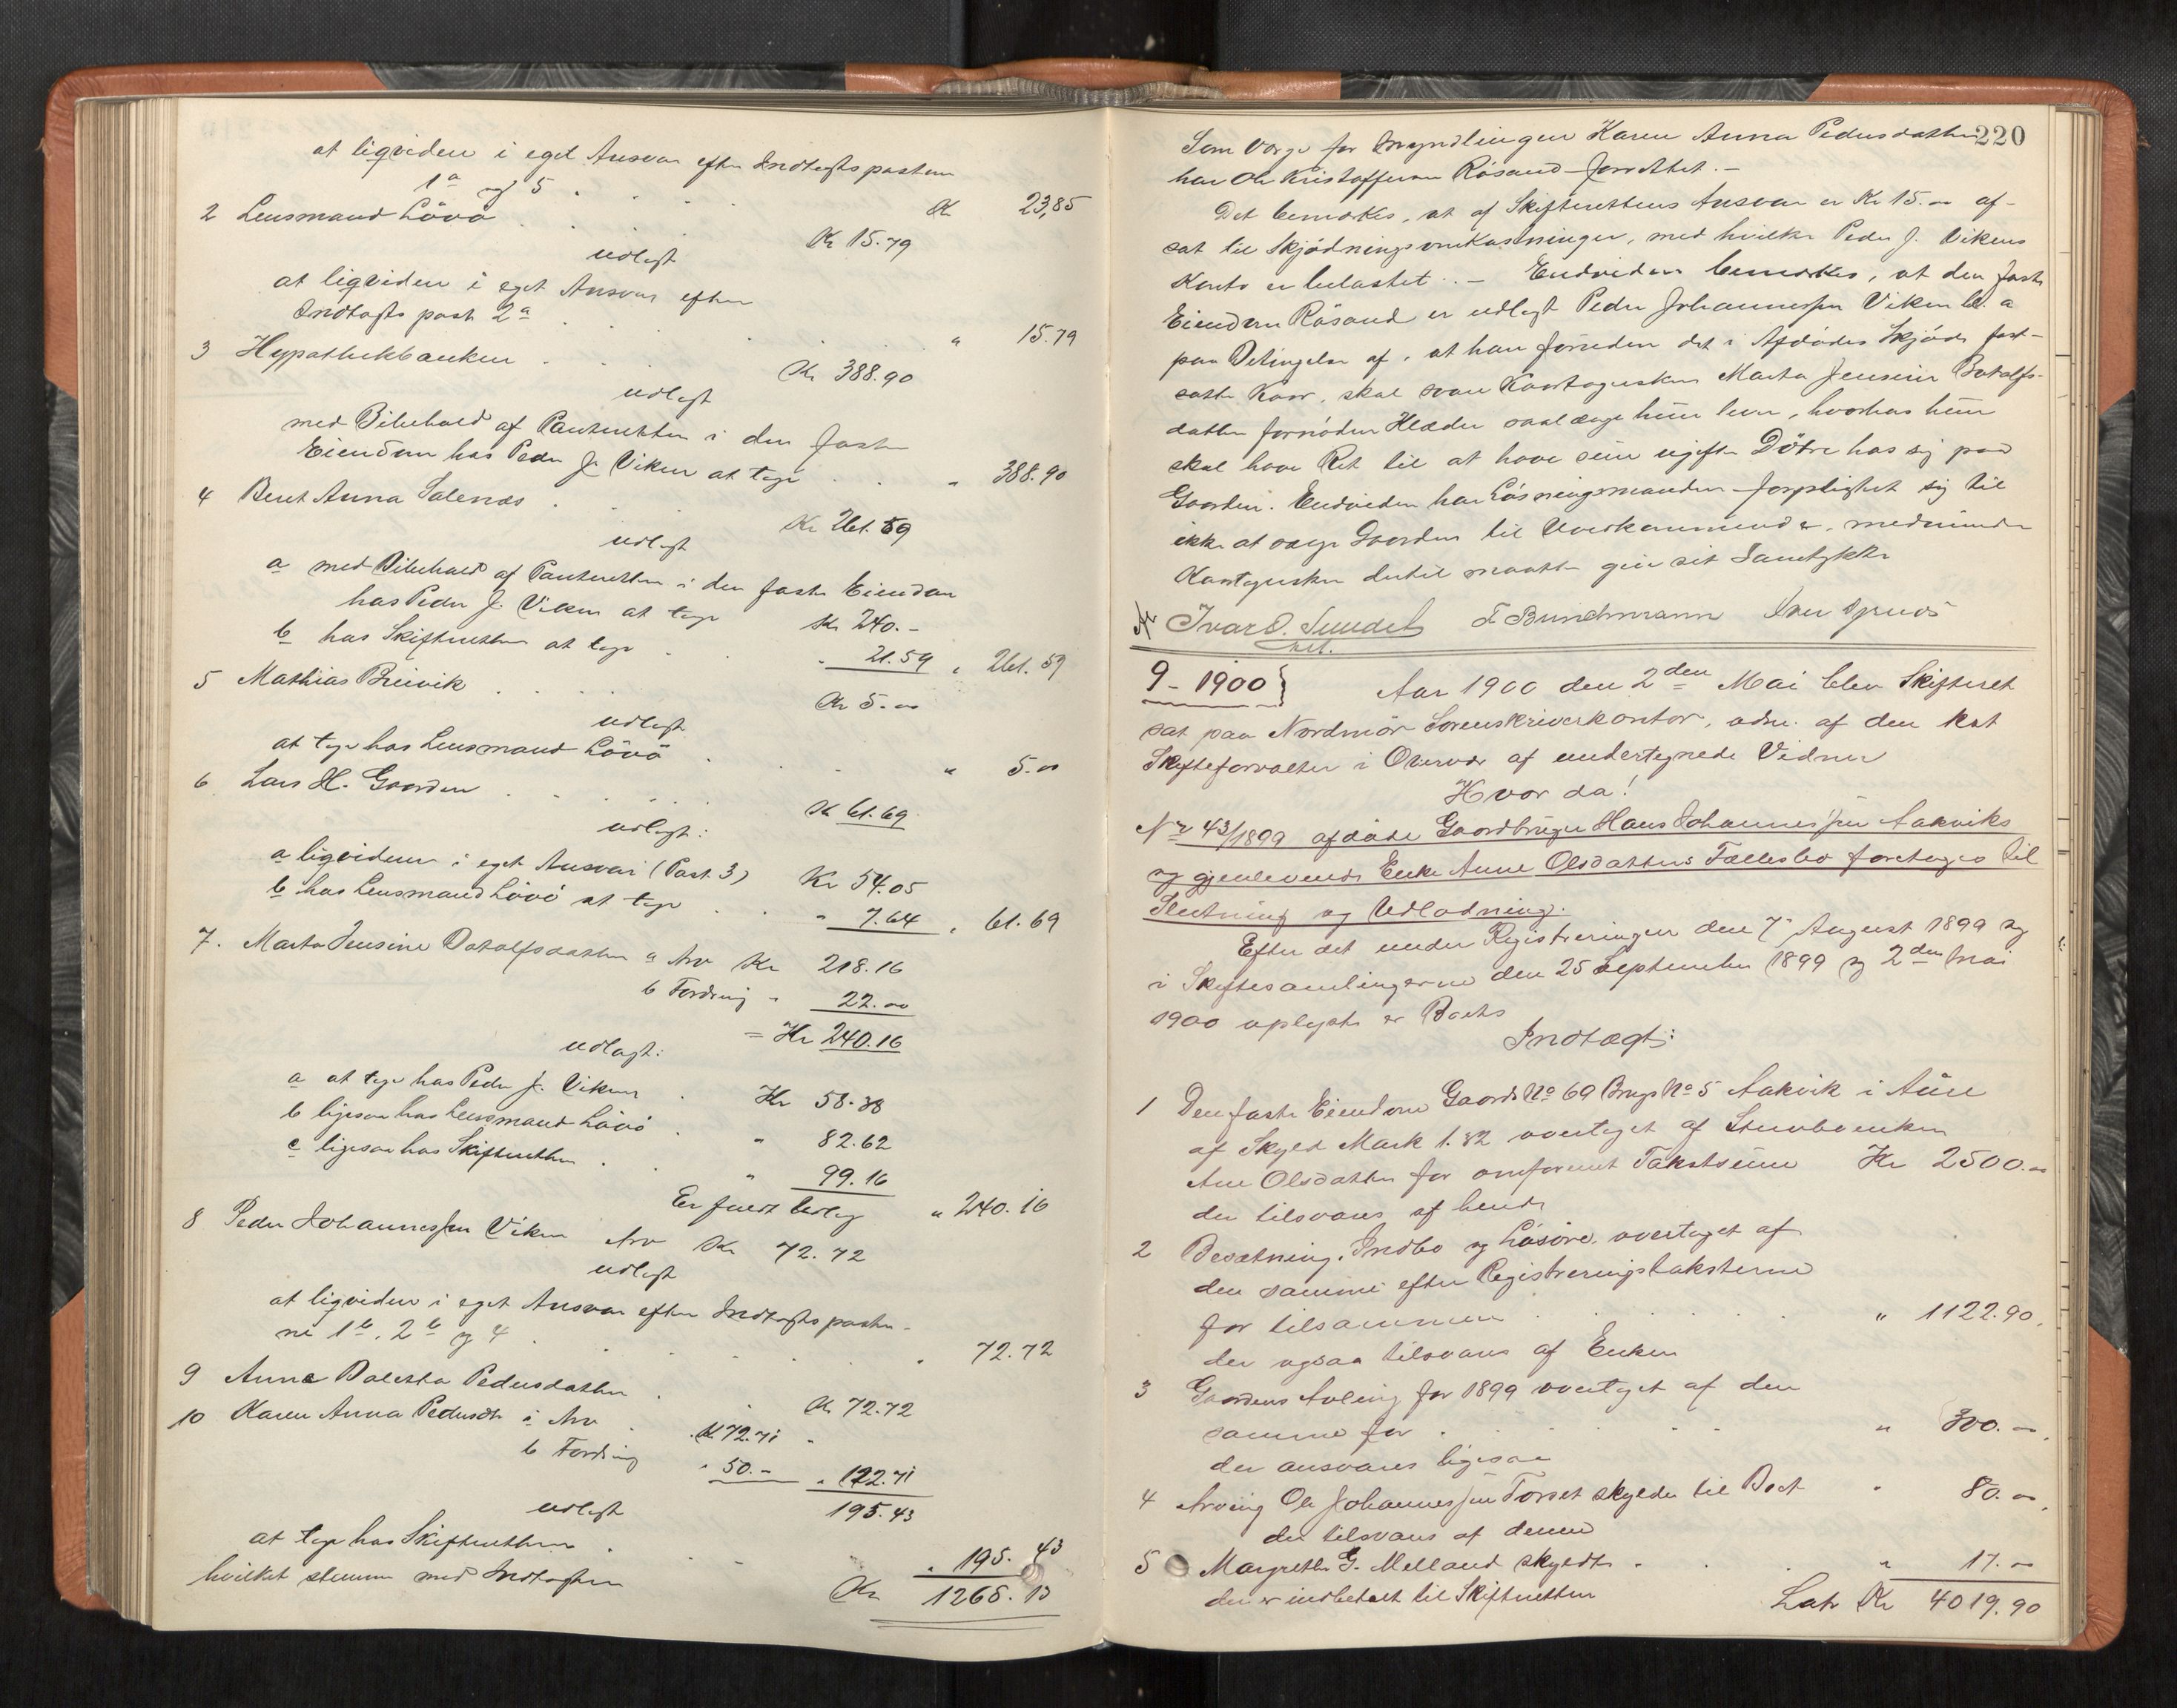 at ligvidere i eget Ansvar efter Indtægtsposterne
1a og 5 . . . . Kr 23,85
2 Lensmand Lövö . . Kr 15.79
udlagt
at ligvidere i eget Ansvar efter
Indtægts post 2a . . . " 15.79
3 Hypothekbanken . . . Kr 388.90
udlagt
med Bibehold af Panteretten i den faste
Eiendom hos Peder J. Viken at tage . . " 388.90
4 Beret Anna Salenæs . . . Kr 261.59
udlagt
a med Bibehold af Panteretten i den faste Eiendom
hos Peder J. Viken at tage Kr 240.-
b hos Skifteretten at tage . . " 21.59 " 261.59
5 Mathias Breivik . . . . Kr 5.00
udlagt
at tage hos Lensmand Lövö . . . " 5.00
6 Lars H. Gaarden . . . . Kr 61.69
udlagt:
a ligviderer i eget Ansvar (Post 3) Kr 54.05
b hos Lensmand Lövö at tage . . " 7.64 " 61.69
7. Marta Jensine Botolfsdatter a Arv Kr 218.16
b Fordring " 22.00
= Kr 240.16
udlagt:
a at tage hos Peder J. Viken . Kr 58.38
b ligesaa hos Lensmand Lövö . " 82.62
c ligesaa hos Skifteretten . . " 99.16
Er fuldt beløb " 240.16
8 Peder Johannessen Viken Arv Kr 72.72
udlagt
at ligvidere i eget Ansvar efter Indtægtsposter-
ne 1b, 2b og 4 . . . . " 72.72
9 Anne Boletta Pedersdatter . . Kr 72.72
10 Karen Anna Pedersdtr a Arv . Kr 72.71 "
b Fordring " 50.- " 122.71
udlagt 195.43
at tage hos Skifteretten . . . " 195.43
hvilket stemmer med Indtægten Kr 1265.13
220
Som Værge for Myndlingen Karen Anna Pedersdatter
har Ole Kristoffersen Råsand forrettet. -
Det bemærkes, at af Skifterettens Ansvar er Kr 15.00 af-
sat til Skjødningsomkostninger, med hvilke Peder J. Vikens
Konto er belastet. - Endvidere bemærkes, at den faste
Eiendom Råsand er udlagt Peder Johannessen Viken bl. a
paa Betingelse af, at han foruden det i Afdødes Skjøde fast-
satte Kaar, skal svare Kaartagersken Marta Jensine Botolfs-
datter fornøden Klæder saalænge hun lever, hvorhos hun
skal have Ret til at have sine ugifte Døtre hos sig paa
Gaarden. Endvidere har Løsningsmanden forpligtet sig til
ikke at sælge Gaarden til Uvedkommende, medmindre
Kaartagersken dertil maatte give sit Samtykke
Ivar O. Sundet F Bunchmann Iver
9 - 1900 } Aar 1900 den 2den Mai blev Skifteret
sat paa Nordmør Sorenskriverkontor, adm. af den kst
Skifteforvalter i Overvær af undertegnede Vidner
Hvor da!
No 43/1899 afdøde Gaardbruger Hans Johannessen Aakviks
og gjenlevende Enke Anne Olsdatters Fællesbo foretages til
Slutning og Udlodning.
Efter det under Registreringen den 7 August 1899 og
i Skiftesamlingerne den 25 September 1899 og 2den Mai
1900 oplyste er Boets
Indtægt:
1 Den faste Eiendom Gaards No 69 Brugs No 5 Aakvik i Aure
af Skyld Mark 1.82 overtaget af Stervboenken
Ane Olsdatter for omforenet Takstsum Kr 2500.00
der tilsvares af hende
2 Besætning, Indbo og Løsøre, overtaget af
den samme efter Registreringstaksterne
for tilsammen . . . " 1122.90.
der ogsaa tilsvares af Enken
3 Gaardens Avling for 1899 overtaget af den
samme for . . . . " 300.-.
der ansvares ligesaa
4 Arving Ole Johannessen Torset skylder til Boet " 80.00.
der tilsvares af denne
5 Margrethe G. Melland skyldte . . " 17.00
der er indbetalt til Skifteretten
Lats Kr 4019.90